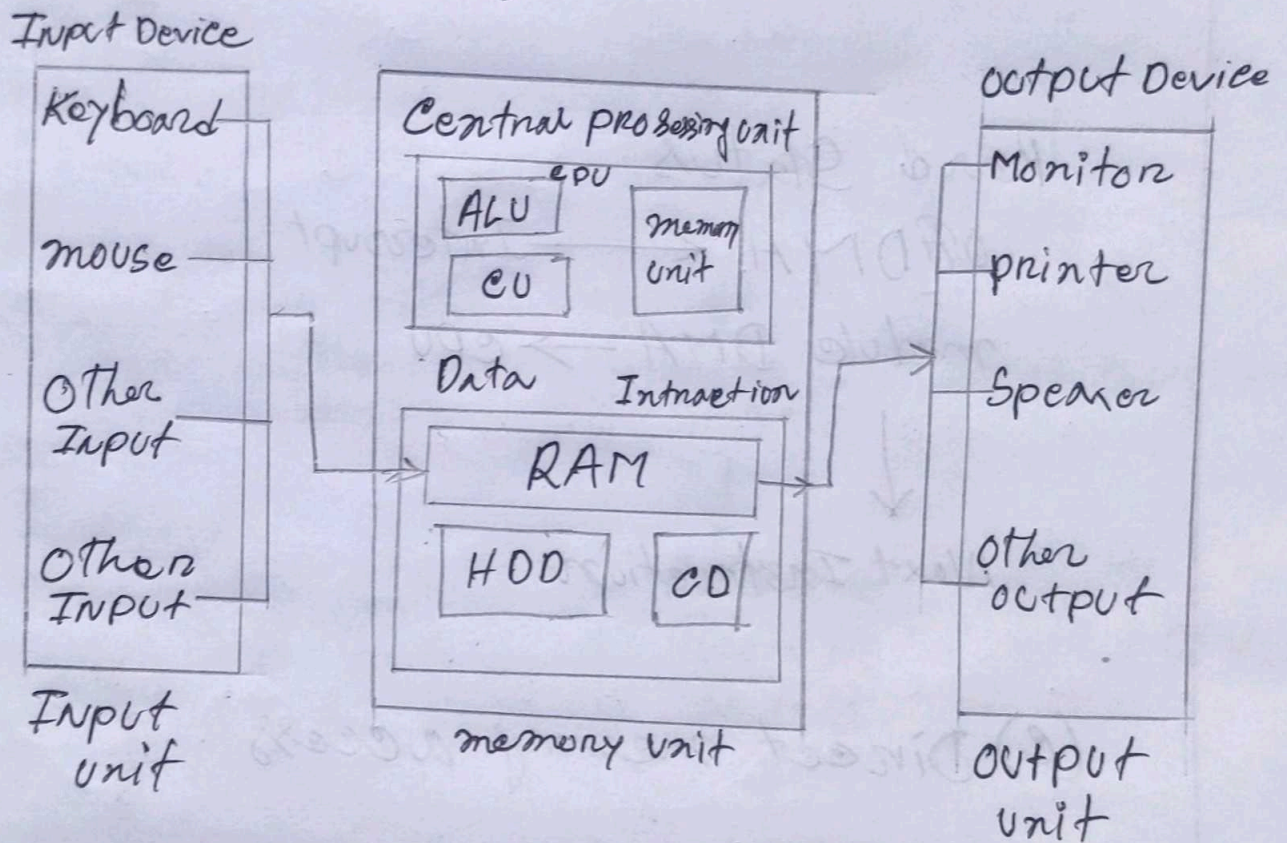 Input Device
Keyboard
mouse
Other
Input
Other
Input
Input
unit
Central processing unit
CPU
ALU
CU
memory
unit
Data
Intraction
RAM
HDD
CD
memory unit
Output Device
Monitor
printer
Speaker
Other
output
Output
unit